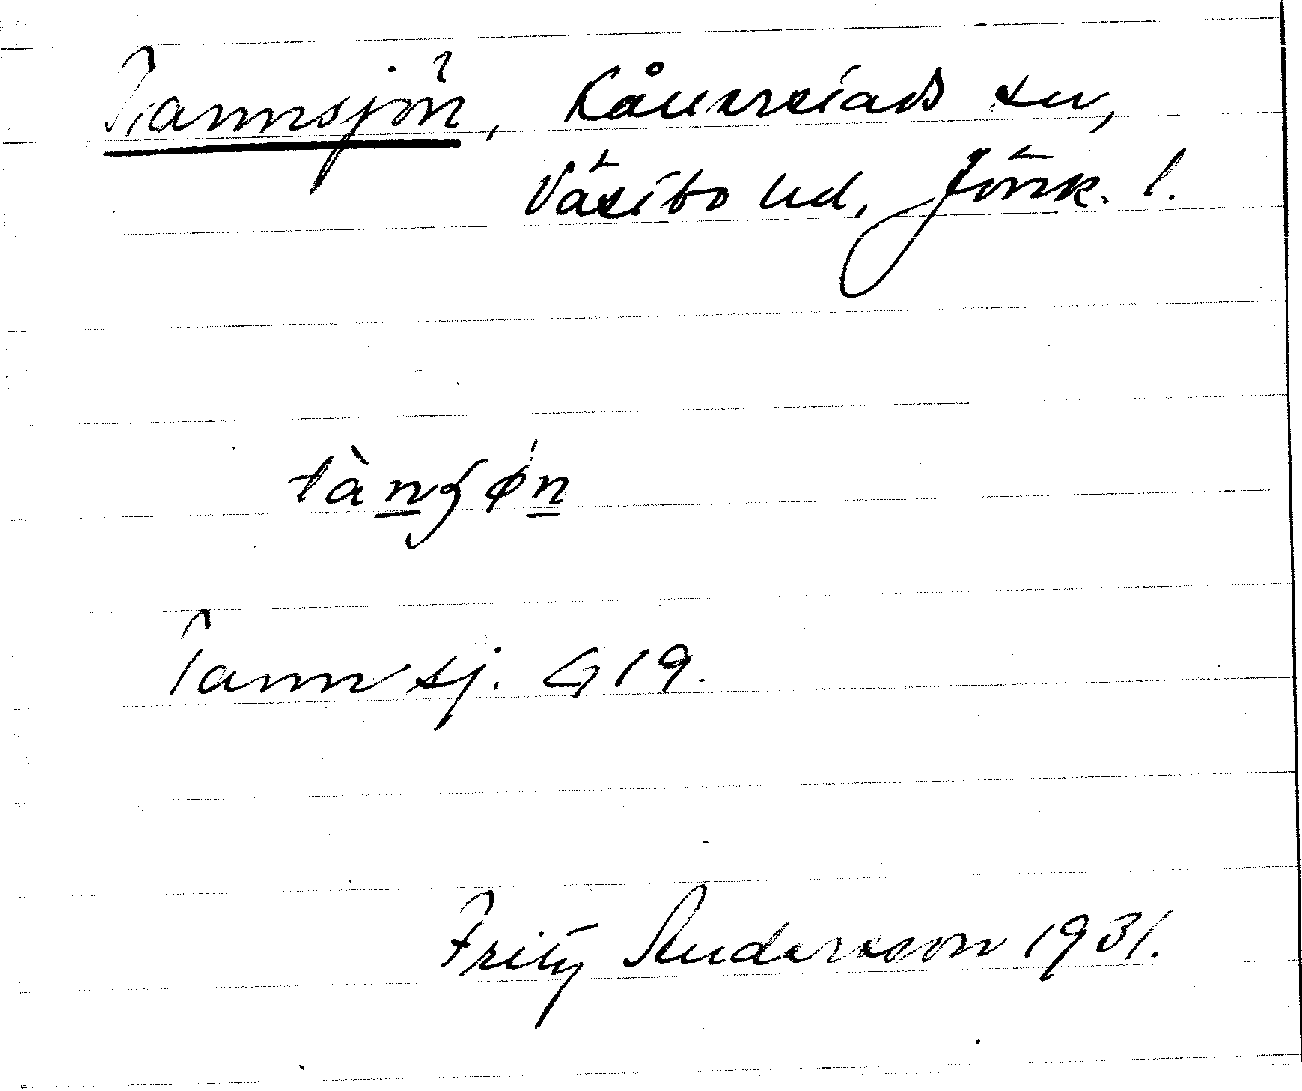 Tannsjön, Kånnestads sn,
Västbo hd, Jönk. l.
tànʃø̀n
Tannsj. G 19.
Fritz Andersson 1931.